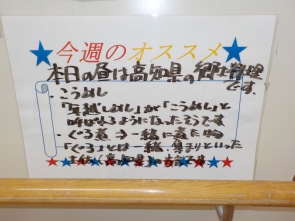 今週のオススメ
本日の昼は高知県の郷土料理
です。
・こうめし
「お越しめし」が「こうめし」と
呼ばれるようになったそうです
・ぐる煮 一緒に煮た物
「ぐる」とは一緒、集まりといった